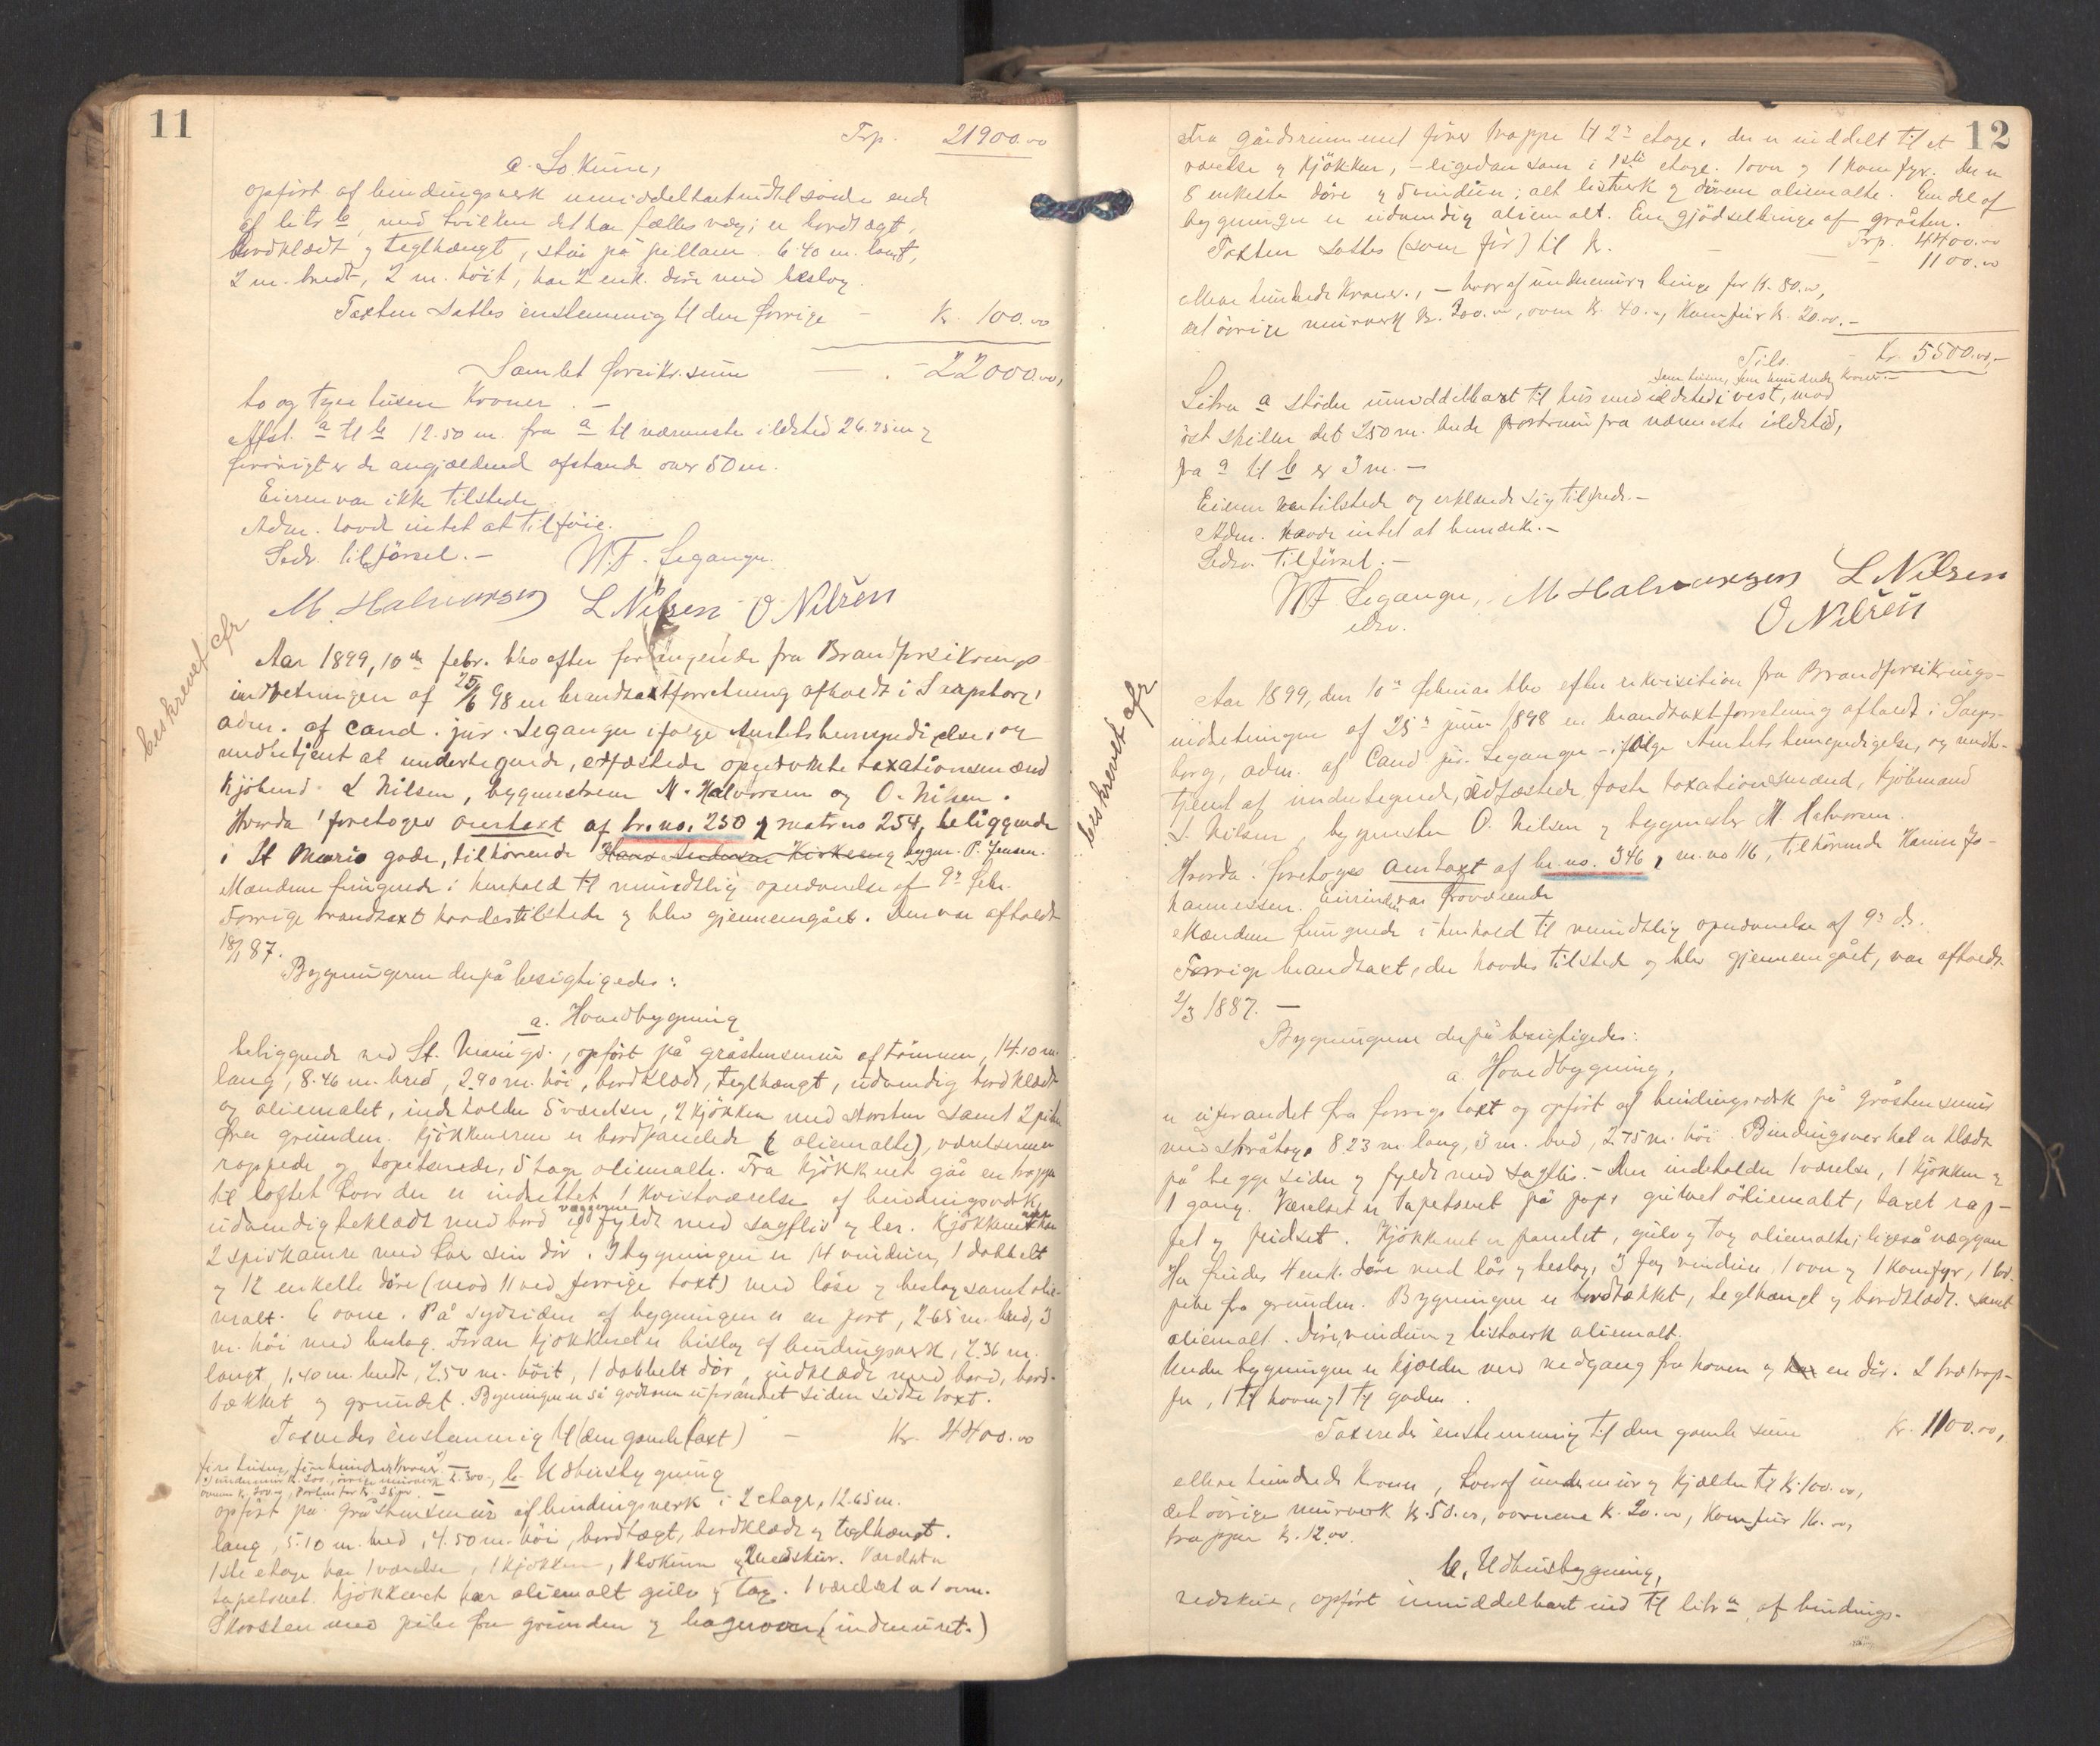 11
Trp. 21900.00
c. Lokum,
opført af bindingsverk umiddelbart indtil søndre ende
af litr b, med hvilken det har fælles væg; er bordtagt,
bordklædt og teglhængt, står på pillarer. 6.40 m. langt,
2 m. bredt, 2 m. høit, har 2 enk. døre med beslag
Taxten sattes enstemmig til den forrige – Kr. 100.00
Samlet forsikr.sum – . – 22000.00,
to og tyve tusen Kroner. –
Afst. a til b 12.50 m. fra a til nærmeste ildsted 26.75 m og
forøvrigt er de angjældende afstande over 50 m.
Eieren var ikke tilstede
Adm. havde intet at tilføie.
Sedv. tilførsel. – W.F. Segange.
M. Halvorsen L Nilsen O Nilsen
beskrevet cfr
Aar 1899, 10de febr. blev efter forlangende fra Brandforsikrings
indretningen af 25/6 98 en brandtaxtforretning afholdt i Sarpsborg,
adm. af cand. jur. Segange ifølge Amtets bemyndigelse, og
medbetjent af undertegnede, edfæstede opnævnte taxationsmænd
Kjøbmd. L Nilsen, bygmestrene M. Halvorsen og O. Nilsen.
Hvorda foretoges omtaxt af br. no. 250 og matr no 254, beliggende
i St Marie gade, tilhørende Hans Andersen Kirkeng bygm. P. Jensen.
Mændene fungerede i henhold til mundtlig opnævnelse af 9de febr.
Forrige brandtaxt havdes tilstede og blev gjennemgået. Den var afholdt
18/1 87.
Bygningerne derpå besigtigedes:
a. Hovedbygning
beliggende ved St. Marie gd., opført på gråstensmur af tømmer, 14.10 m.
lang, 8.46 m. bred, 2.90 m. høi, bordklædt, teglhængt, udvendig bordklædt
og oliemalet, indeholder 5 værelser, 2 kjøkken med skorsten samt 2 piber
fra grunden. Kjøkkenerne er bordpanelede (oliemalte), værelserne er
rappede og tapetserede, 5 tage oliemalte. Fra kjøkkenet går en trappe
til loftet hvor der er indrettet 1 kvistværelse af bindingsverk,
udvendig beklædt med bord og væggene fyldt med sagflis og ler. Kjøkkenet har
2 spiskamre med hver sin dør. I bygningen er 14 vinduer, 1 dobbelt
og 12 enkelte døre (mod 11 ved forrige taxt) med låse og beslag samt olie-
malt. 6 ovne. På sydsiden af bygningen er en port, 2.65 m. bred, 3
m. høi med beslag. Foran kjøkkenet er bislag af bindingsverk, 2.36 m.
langt, 1.40 m. bredt, 2.50 m. høit, 1 dobbelt dør, indklædt med bord, bord-
tækket og grundet. Bygningen er så godtsom uforandret siden sidste taxt.
Taxeredes enstemmig til (den gamle taxt) – Kr. 4400.00
fire tusen, fire hundrede Kroner –
undermur k. 200., øvrige murverk k. 300., b. Udhusbygning
ovnene k. 200.00, Porten for k. 25.00
opført på gråstensmur af bindingsverk i 2 etage, 12.65 m.
lang, 5.10 m. bred, 4.50 m. høi, bordtagt, bordklædt og teglhængt.
1ste etage har 1 værelse, 1 kjøkken, 1 lokum og vedskur. Værelset er
tapetseret. Kjøkkenet har oliemalt gulv og tag. I værelset er 1 ovn.
Skorsten med pibe fra grunden og bagerovn (indmuret.)
12
Fra gårdsrummet fører trappe til 2den etage, der er inddelt til et
værelse og kjøkken, – ligedan som i 1ste etage. 1 ovn og 1 komfyr. Der er
8 enkelte døre og 5 vinduer; alt listverk og dørene oliemalte. En del af
bygningen er udvendig oliemalt. En gjødselbinge af gråsten.
Trp. 4400.00
Taxten sattes (som før) til k. – – 1100.00
ellève hundrede Kroner., – hvoraf undermur og binge for k. 80.00,
det øvrige murverk k. 200.00, ovne k. 40.00, Komfur k. 20.00. –
Tils. – Kr. 5500.00, –
fem tusen, fem hundrede Kroner. –
Litra a støder umiddelbart til hus med ildsted i vest, mod
øst skiller det 250 m. brede portrum fra nærmeste ildsted,
fra a til b er 3 m. –
Eieren var tilstede og erklærede sig tilfreds. –
Adm. havde intet at bemærke. –
Sedv. tilførsel. –
W.F. Segange, M Halvorsen L Nilsen
edsv. O Nilsen
beskrevet cfr
Aar 1899, den 10de februar blev efter rekvisition fra Brandforsikrings-
indretningen af 25de juni 1898 en brandtaxtforretning afholdt i Sarps-
borg, adm. af Cand jur. Segange – ifølge Amtets bemyndigelse, og medbe-
tjent af undertegnede, edfæstede faste taxationsmænd, kjøbmand
L. Nilsen, bygmester O. Nilsen og bygmester M. Halvorsen.
Hvorda foretoges omtaxt af br. no. 346, m. no 116, tilhørende Karen Jo-
hannessen. Eierinden var fraværende
Mændene fungerede i henhold til mundtlig opnævnelse af 9de ds.
Forrige brandtaxt, der havdes tilstede og blev gjennemgået, var afholdt
2/3 1887. –
Bygningerne derpå besigtigedes:
a. Hovedbygning,
er uforandret fra forrige taxt og opført af bindingsverk på gråstensmur
med skråtag, 8.23 m. lang, 3 m. bred, 2.75 m. høi. Bindingsverket er klædt
på begge sider og fyldt med sagflis. – Den indeholder 1 værelse, 1 kjøkken og
1 gang. Værelset er tapetseret på pap, gulvet oliemalt, taget rap-
pet og pudset. Kjøkkenet er panelet, gulv og tag oliemalte; ligeså væggene
Her findes 4 enk. døre med lås og beslag, 3 fag vinduer, 1 ovn og 1 komfyr, 1
pibe fra grunden. Bygningen er bordtækket, teglhængt og bordklædt. samt
oliemalt. Døre, vinduer og listverk oliemalt.
Under bygningen er kjælder med nedgang fra haven og har en dør. 2 trætrap-
per, 1 til haven og 1 til gaden.
Taxeredes enstemmig til den gamle sum kr. 1100.00,
ellève hundrede Kroner, hvoraf undermur og kjælder til k. 100.00,
det øvrige murverk k. 50.00, ovnene k. 20.00, Komfur 16.00,
trapper k. 12.00.
b. Udhusbygning,
vedskur, opført umiddelbart ind til litr a, af bindings-